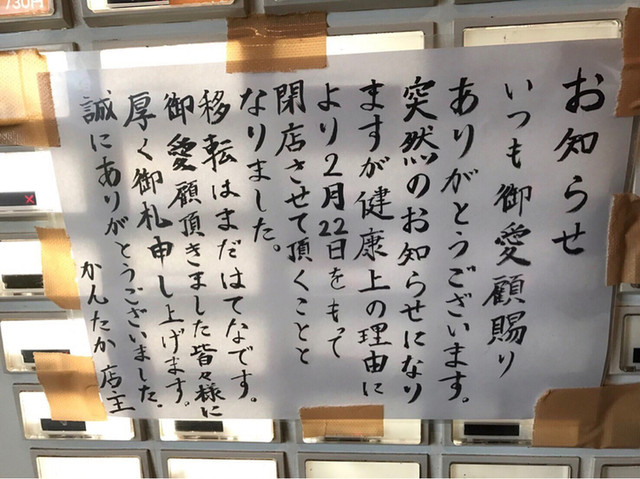 730円
お知らせ
いつも御愛顧賜り
ありがとうございます。
突然のお知らせになり
ますが健康上の理由に
より2月22日をもって
閉店させて頂くことと
なりました。
移転はまだはてなです。
御愛顧頂きました皆々様に
厚く御札申し上げます。
誠にありがとうございました.
かんたか店主